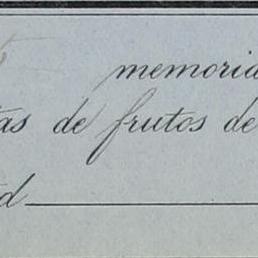 memoria
as de frutos de
d